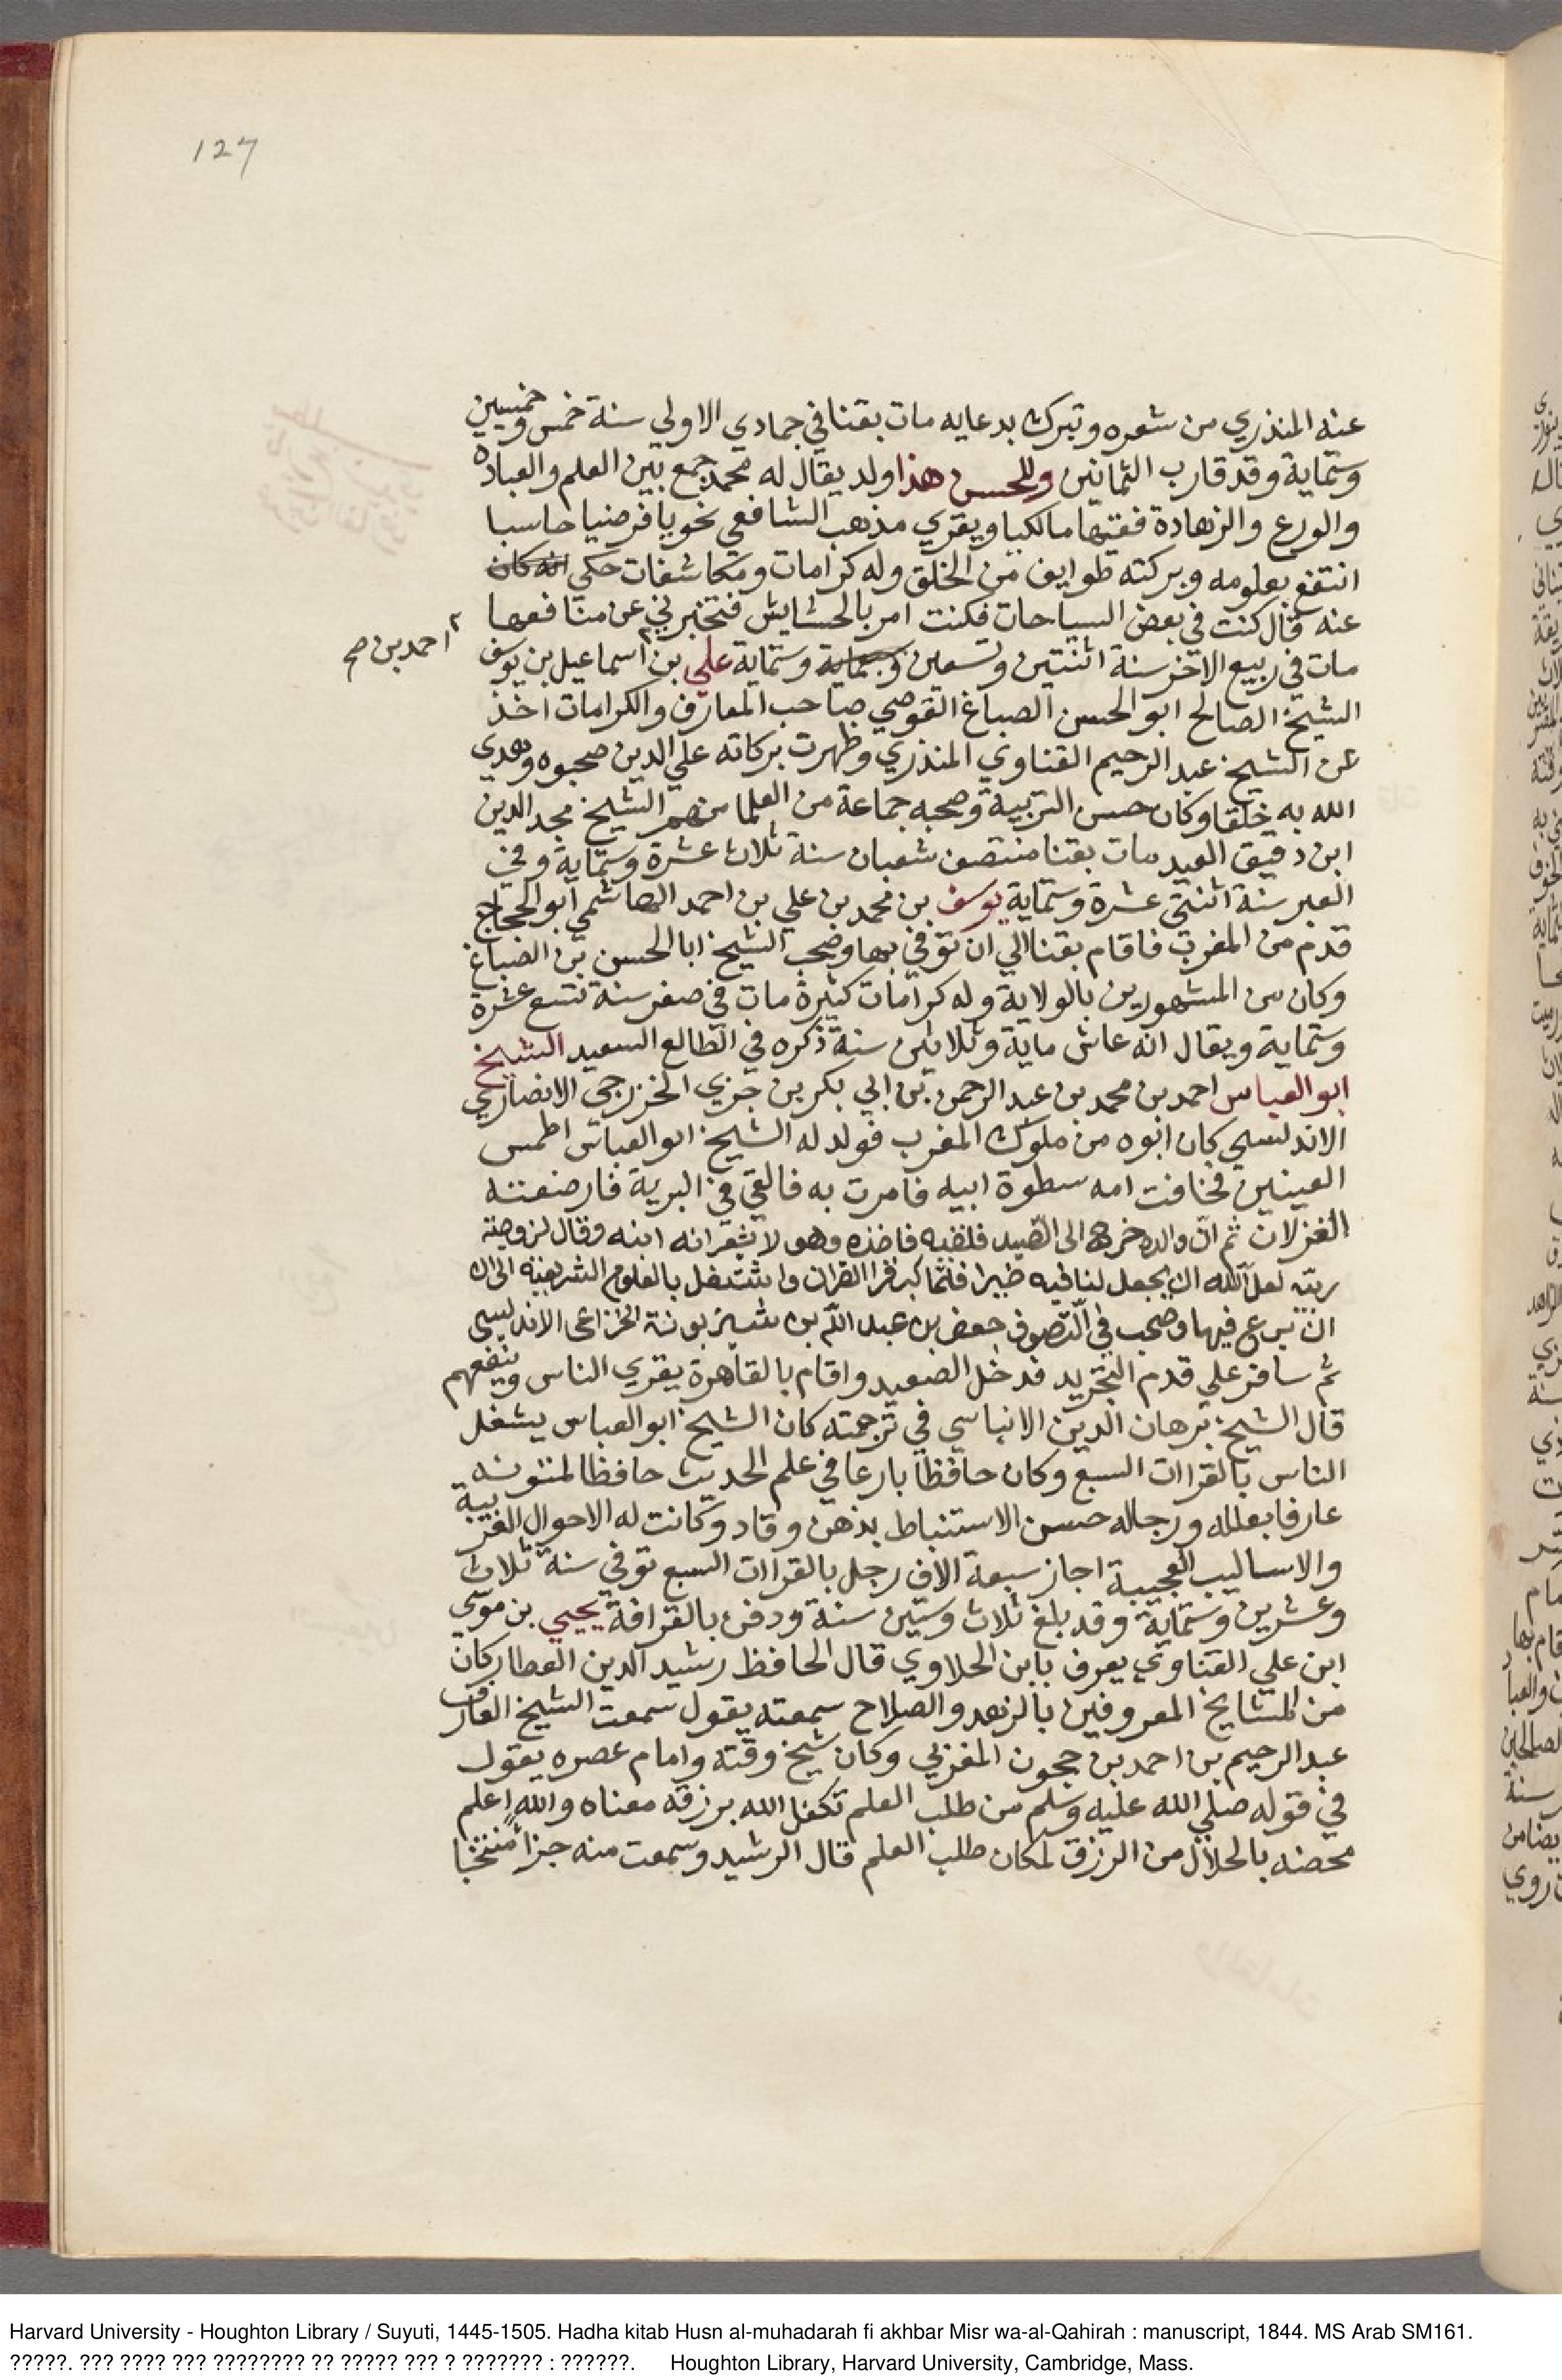 127
عنه المنذري من شعره وتبرك بدعايه مات بقنا في جمادي الاولي سنة خمس وخمسين
وستماية وقد قارب الثمانين وللحسن هذا ولد يقال له محمد جمع بين العلم والعبادة
والورع والزهادة فقيها مالكيا ويقري مذهب الشافعي نحويا فرضيا حاسبا
انتفع بعلومه وبركته طوايف من الخلق وله كرامات ومكاشفات حكي انه كان
عنه قال كنت في بعض السياحات فكنت امر بالحشايش فتخبرني عن منافعها
مات في ربيع الاخر سنة اثنتين وتسعين وستماية علي بن اسماعيل بن يوسف
احمد بن صح
الشيخ الصالح ابو الحسن الصباغ القوصي صاحب المعارف والكرامات اخذ
عن الشيخ عبد الرحيم القناوي المنذري وظهرت بركاته علي الدين صحبوه وهدي
الله به خلقا وكان حسن التربية وصحبه جماعة من العلما منهم الشيخ مجد الدين
ابن دقيق العيد مات بقنا منتصف شعبان سنة ثلاث عشرة وستماية وفي
العبر سنة اثنتي عشرة وستماية يوسف بن محمد بن علي بن احمد الهاشمي ابو الحجاج
قدم من المغرب فاقام بقنا الي ان توفي بها وصحب الشيخ ابا الحسن بن الصباغ
وكان من المشهورين بالولاية وله كرامات كثيرة مات في صفر سنة تسع عشرة
وستماية ويقال انه عاش ماية وثلاثين سنة ذكره في الطالع السعيد الشيخ
ابو العباس احمد بن محمد بن عبد الرحمن بن ابي بكر بن جزي الخزرجي الانصاري
الاندلسي كان ابوه من ملوك المغرب فولد له الشيخ ابو العباس اطمس
العينين فخافت امه سطوة ابيه فامرت به فالقي في البرية فارضعته
الغزلان ثم ان والده خرج الى الصيد فلقيه فاخذه وهو لا يشعر انه ابنه وقال لزوجته
ربيه لعل الله ان يجعل لنا فيه خيرا فلما كبر قرا القران واشتغل بالعلوم الشرعية الى ان
ان برع فيها وصحب في التصوف جعفر بن عبد الله بن بونة الخزاعى الاندلسي
ثم سافر علي قدم التجريد فدخل الصعيد واقام بالقاهرة يقري الناس وينفعهم
قال الشيخ برهان الدين الانباسي في ترجمته كان الشيخ ابو العباس يشغل
الناس بالقراات السبع وكان حافظا بارعا في علم الحديث حافظا لمتونه
عارفا بعلله ورجاله حسن الاستنباط بذهن وقاد وكانت له الاحوال الغريبة
والاساليب العجيبة اجاز سبعة الاف رجل بالقراات السبع توفي سنة ثلاث
وعشرين وستماية وقد بلغ ثلاث وستين سنة ودفن بالقرافة يحيي بن موسي
ابن علي القناوي يعرف بابن الحلاوي قال الحافظ رشيد الدين العطار كان
من المشايخ المعروفين بالزهد والصلاح سمعته يقول سمعت الشيخ العارف
عبد الرحيم بن احمد بن حجون المغربي وكان شيخ وقته وامام عصره يقول
في قوله صلي الله عليه وسلم من طلب العلم تكفل الله برزقه معناه والله اعلم
محضه بالحلال من الرزق لمكان طلب العلم قال الرشيد وسمعت منه جزا منتخبا
Harvard University - Houghton Library / Suyuti, 1445-1505. Hadha kitab Husn al-muhadarah fi akhbar Misr wa-al-Qahirah : manuscript, 1844. MS Arab SM161.
?????. ??? ???? ??? ???????? ?? ????? ??? ? ??????? : ??????. Houghton Library, Harvard University, Cambridge, Mass.